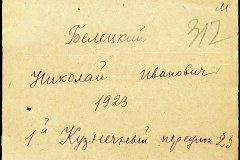 м
312
Белецкий
Николай Иванович
1923
1й Кузнечный переулок 23